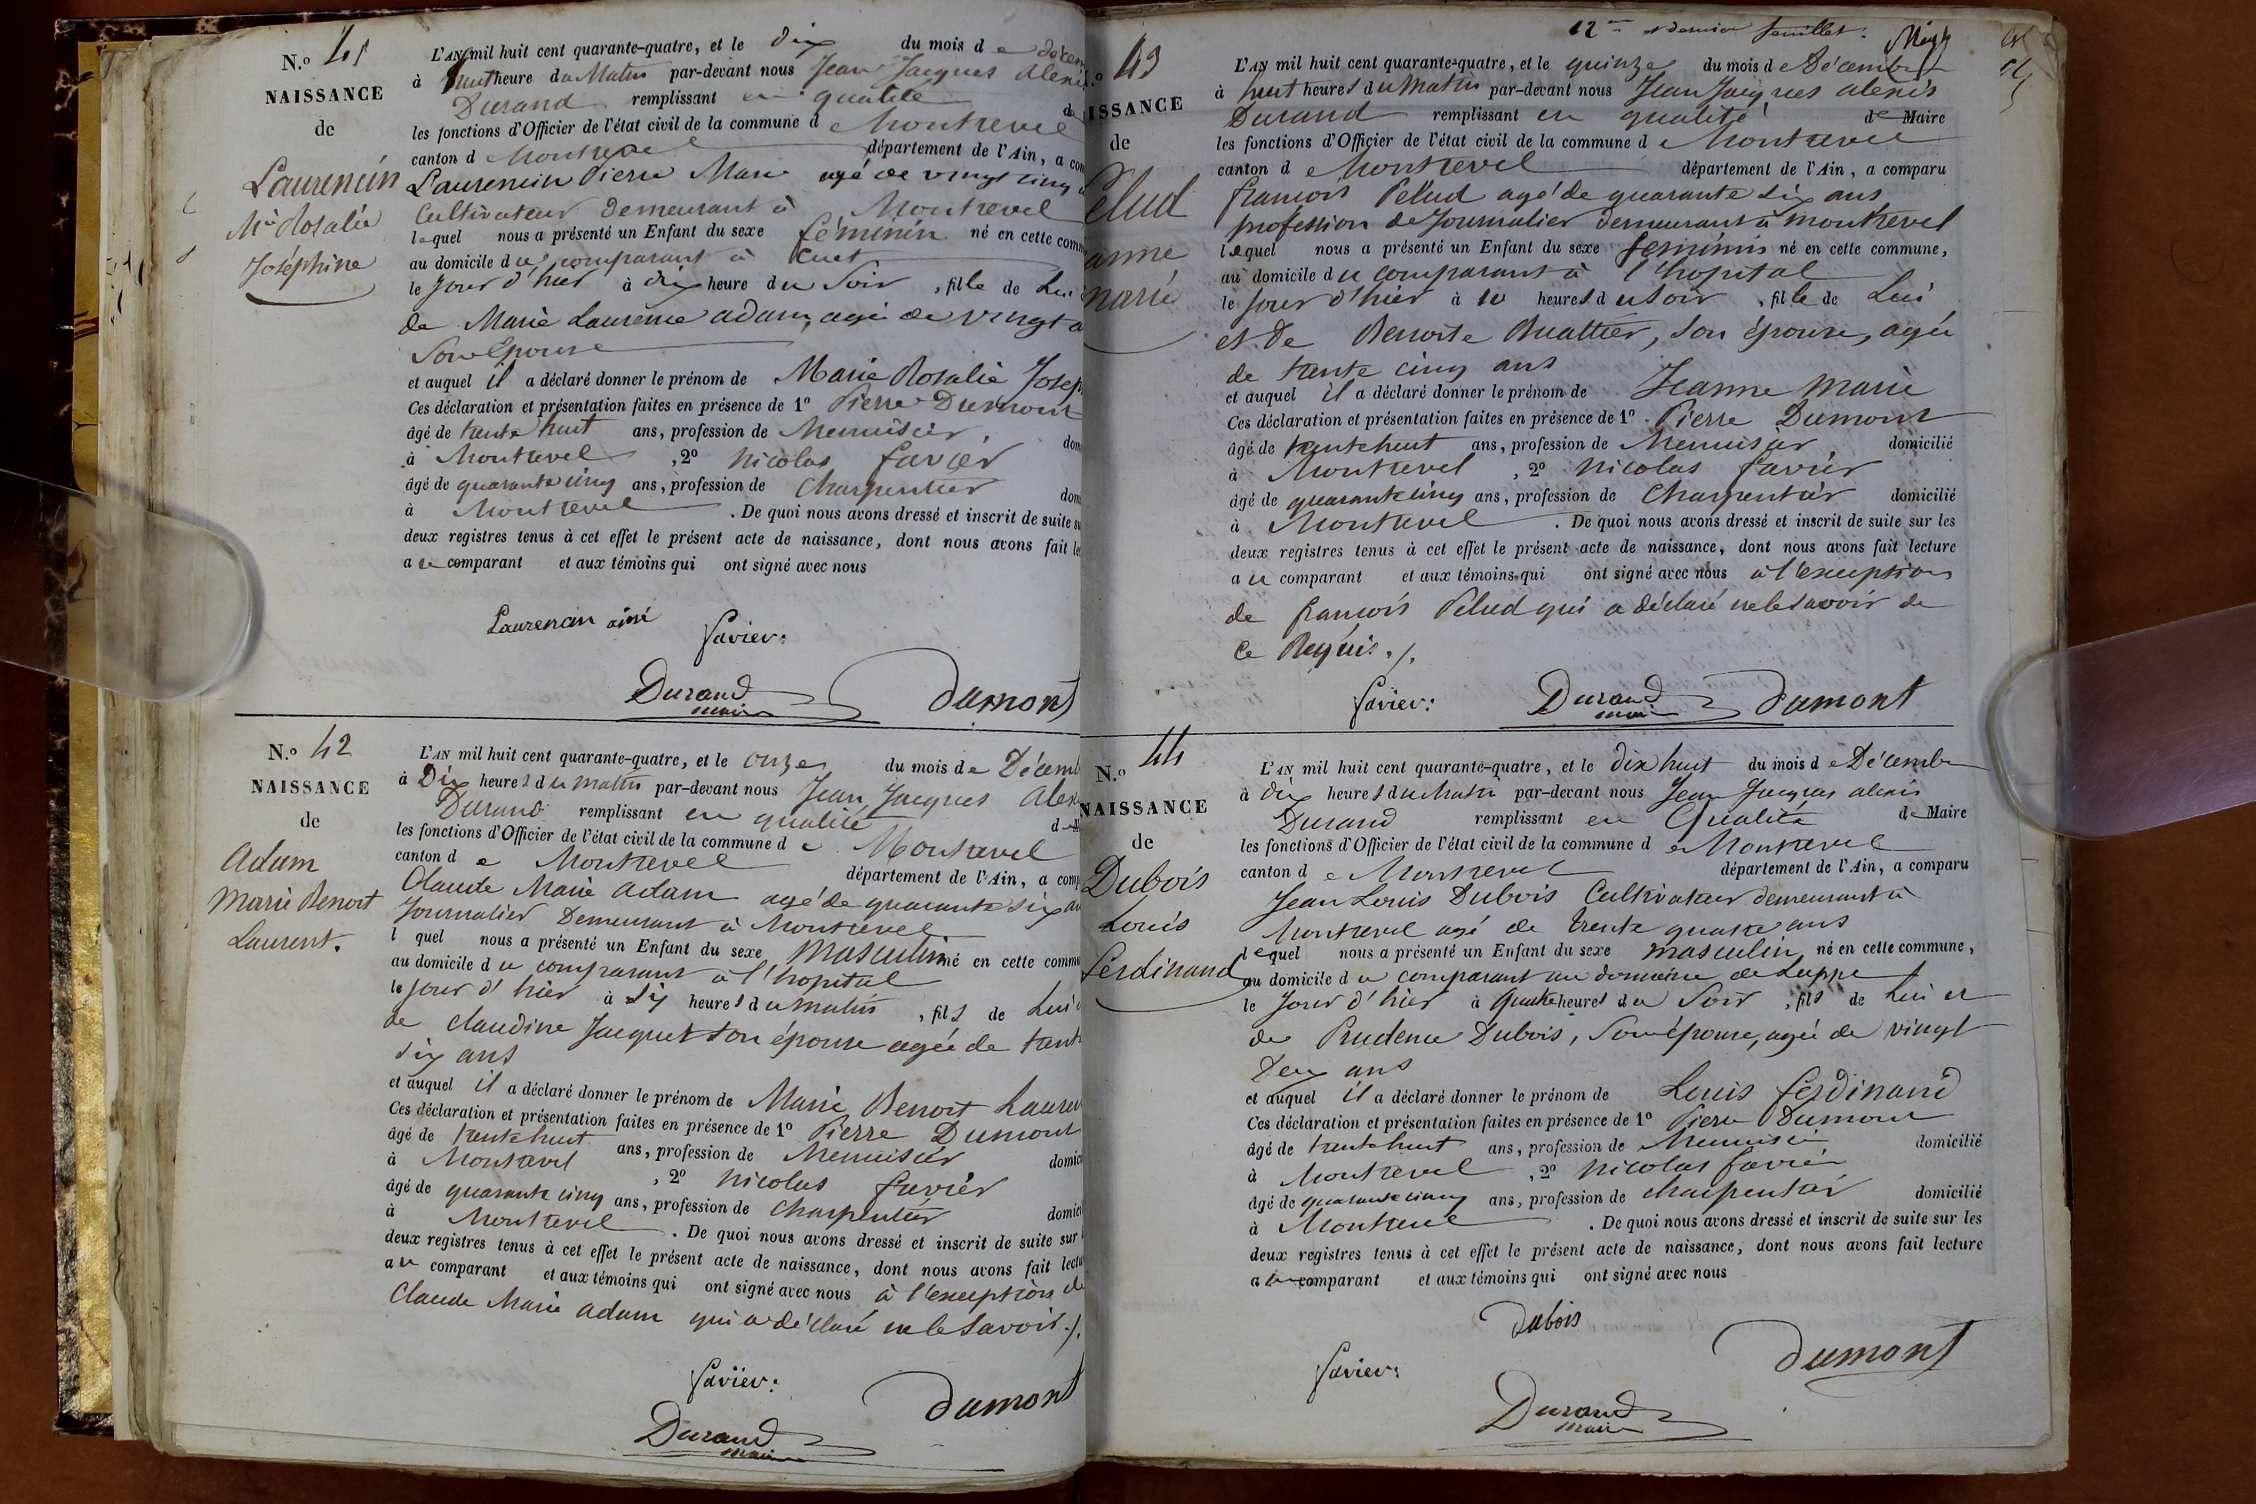 N.º 41
NAISSANCE
de
Laurencin
Mie Rosalie
Joséphine
L'AN mil huit cent quarante-quatre, et le dix du mois de
à huit heure du Matin par-devant nous Jean Jacques
Durand remplissant en qualité
les fonctions d'Officier de l'état civil de la commune de Montrevel
canton de Montrevel département de l'Ain, a
Laurencin Pierre Marie agé de vingt cinq
Cultivateur demeurant à Montrevel
lequel nous a présenté un Enfant du sexe féminin né en cette
au domicile du comparant à Cuet
le jour d'hier à dix heure du Soir, fille de Lui
de Marie Laurence adam, agée de vingt
Son Epouse
et auquel il a déclaré donner le prénom de Marie Rosalie
Ces déclaration et présentation faites en présence de 1º Pierre Dumont
âgé de trente huit ans, profession de Menuisier,
à Montrevel, 2º Nicolas favier
âgé de quarante cinq ans, profession de Charpentier
à Montrevel. De quoi nous avons dressé et inscrit de suite
deux registres tenus à cet effet le présent acte de naissance, dont nous avons fait
au comparant et aux témoins qui ont signé avec nous
Laurencin ainé
favier:
Durand Dumont
maire
N.º 42
NAISSANCE
de
Adam
Marie Benoit
Laurent.
L'AN mil huit cent quarante-quatre, et le onze du mois de
à Dix heures du matin par-devant nous Jean Jacques
Durand remplissant en qualité
les fonctions d'Officier de l'état civil de la commune de Montrevel
canton de Montrevel département de l'Ain, a
Claude Marie adam agé de quarante six
Journalier Demeurant à Montrevel
l quel nous a présenté un Enfant du sexe masculin né en cette
au domicile du comparant à l'hopital
le jour d'hier à six heures du matin, fils de Lui
de claudine Jacquet son épouse agée de
six ans
et auquel il a déclaré donner le prénom de Marie Benoit
Ces déclaration et présentation faites en présence de 1º Pierre Dumont
âgé de trente huit ans, profession de Menuisier
à Montrevel, 2º Nicolas favier
âgé de quarante cinq ans, profession de Charpentier
à Montrevel. De quoi nous avons dressé et inscrit de suite sur
deux registres tenus à cet effet le présent acte de naissance, dont nous avons fait
au comparant et aux témoins qui ont signé avec nous à l'exception
Claude Marie adam qui a déclaré ne le savoir./.
favier:
Dumont
Durand
maire
12me et dernier feuillet.
43
de
anne
marie
L'AN mil huit cent quarante-quatre, et le quinze du mois de Décembre
à huit heures du Matin par-devant nous Jean Jacques alexis
Durand remplissant en qualité de Maire
les fonctions d'Officier de l'état civil de la commune de Montrevel
canton de Montrevel département de l'Ain, a comparu
francois Pelud agé de quarante six ans
profession de Journalier demeurant à montrevel
lequel nous a présenté un Enfant du sexe feminin né en cette commune,
au domicile du comparant à l'hopital
le jour d'hier à 10 heures du soir, fille de Lui
et De Benoite Buattier, son épouse, agée
de trente cinq ans
et auquel il a déclaré donner le prénom de Jeanne Marie
Ces déclaration et présentation faites en présence de 1º Pierre Dumont
âgé de trente huit ans, profession de Menuisier domicilié
à Montrevel, 2º Nicolas favier
âgé de quarante cinq ans, profession de Charpentier domicilié
à Montrevel. De quoi nous avons dressé et inscrit de suite sur les
deux registres tenus à cet effet le présent acte de naissance, dont nous avons fait lecture
au comparant et aux témoins qui ont signé avec nous à l'exception
de francois Pelud qui a déclaré ne le savoir de
ce Requis./.
favier: Durand Dumont
maire
N.º 44
NAISSANCE
de
Dubois
Louis
ferdinand
L'AN mil huit cent quarante-quatre, et le dix huit du mois de Décembre
à dix heures du Matin par-devant nous Jean Jacques alexis
Durand remplissant en Qualité de Maire
les fonctions d'Officier de l'état civil de la commune de Montrevel
canton de Montrevel département de l'Ain, a comparu
Jean Louis Dubois Cultivateur demeurant à
Montrevel agé de trente quatre ans
lequel nous a présenté un Enfant du sexe masculin né en cette commune,
au domicile du comparant au domaine de
le Jour d'hier à quatre heures du Soir, fils de Lui et
de Prudence Dubois, Son épouse, agée de vingt
Deux ans
et auquel il a déclaré donner le prénom de Louis ferdinand
Ces déclaration et présentation faites en présence de 1º Pierre Dumont
âgé de trente huit ans, profession de Menuisier domicilié
à Montrevel, 2º Nicolas favier
âgé de quarante cinq ans, profession de charpentier domicilié
à Montrevel. De quoi nous avons dressé et inscrit de suite sur les
deux registres tenus à cet effet le présent acte de naissance, dont nous avons fait lecture
au comparant et aux témoins qui ont signé avec nous
Dubois
favier: Dumont
Durand
maire